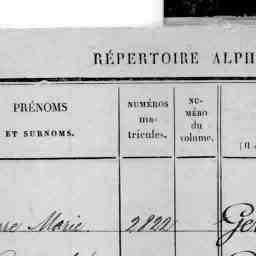 RÉPERTOIRE ALPH
PRÉNOMS
ET SURNOMS.
NUMÉROS
ma-
tricules.
NU-
MÉRO
du
volume.
Marie 2822